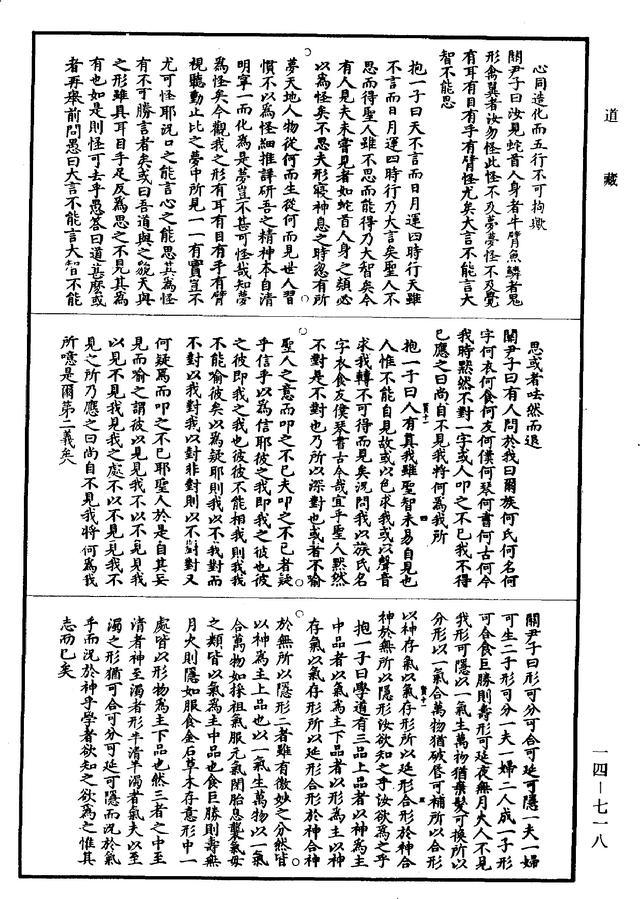 道藏
心同造化而五行不可拘歟
關尹子曰汝見蛇首人身者牛臂魚鱗者鬼
形禽翼者汝勿怪此怪不及夢夢怪不及覺
有耳有目有手有臂怪尤矣大言不能言大
智不能思
抱一子曰天不言而日月運四時行天雖
不言而日月運四時行乃大言矣聖人不
思而得聖人雖不思而能得乃大智矣今
有人見夫未嘗見者如蛇首人身之類必
以為怪矣不思夫形寢神息之時忽有所
夢天地人物從何而生從何而見世人習
慣不以為怪細推詳研吾之精神本自清
明寧一而化為是夢豈不甚可怪哉知夢
為怪矣今觀我之形有耳有目有手有臂
視聽動止比之夢中所見一一有實豈不
尤可怪耶況口之能言心之能思其為怪
有不可勝言者矣或曰吾道與之貌天與
之形雖具耳目手足反為思之不見其為
有也如是則怪可去乎愚答曰道甚麼或
者再舉前問愚曰大言不能言大智不能
思或者呿然而退
關尹子曰有人問於我曰爾族何氏何名何
字何衣何食何友何僕何琴何書何古何今
我時默然不對一字或人叩之不已我不得
已應之曰尚自不見我將何為我所
抱一子曰人有真我雖聖智未易自見也
人惟不能自見故或以色求我或以聲音
求我轉不可得而見矣況問我以族氏名
字衣食友僕琴書古今哉宜乎聖人默然
不對是不對也乃所以深對也或者不喻
聖人之意而叩之不已夫叩之不已者疑
乎信乎以為信耶彼之我即我之彼也彼
之彼即我之我也彼彼不能相我則我我
不能喻彼矣以為疑耶則我以不我對而
不對以我對我以對非對則以不對對又
何疑焉而叩之不已耶聖人於是自其妄
見而喻之謂彼以見見我不以不見見我
以見不見我見我之處不以不見見我不
見之所乃應之曰尚自不見我將何為我
所噫是爾第二義矣
關尹子曰形可分可合可延可隱一夫一婦
可生二子形可分一夫一婦二人成一子形
可合食巨勝則壽形可延夜無月火人不見
我形可隱以一氣生萬物猶棄髮可換所以
分形以一氣合萬物猶破唇可補所以合形
以神存氣以氣存形所以延形合形於神合
神於無所以隱形汝欲知之乎汝欲為之乎
抱一子曰學道有三品上品者以神為主
中品者以氣為主下品者以形為主以神
存氣以氣存形所以延形合形於神合神
於無所以隱形二者雖有微妙之分然皆
以神為主上品也以一氣生萬物以一氣
合萬物如採祖氣服元氣閉胎息襲氣母
之類皆以氣為主中品也食巨勝則壽無
月火則隱如服食金石草木存意形中一
處皆以形物為主下品也然三者之中至
清者神至濁者形半清半濁者氣夫以至
濁之形猶可合可分可延可隱而況於氣
乎而況於神乎學者欲知之欲為之惟其
志而已矣
一四－七一八